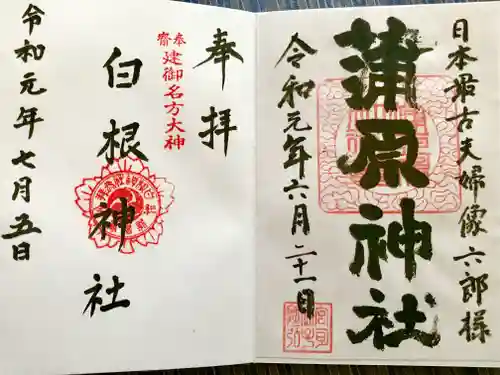 日本最古夫婦像 六郎様
蒲原神社
令和元年六月二十一日
奉拝
奉斎 建御名方大神
白根神社
令和元年七月五日